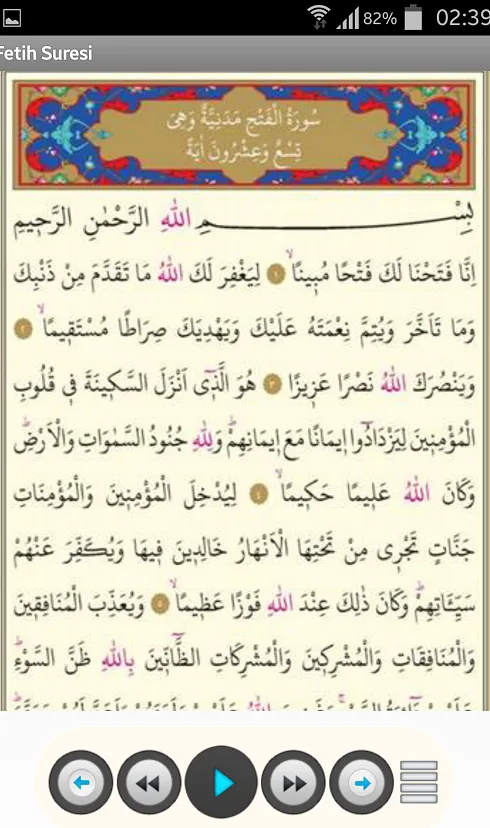 82% 02:39
Fetih Suresi
سُورَةُ الْفَتْحِ مَدَنِيَّةٌ وَهِيَ
تِسْعٌ وَعِشْرُونَ اٰيَةً
بِسْــــــــــــــمِ اللّٰهِ الرَّحْمٰنِ الرَّحٖيمِ
اِنَّا فَتَحْنَا لَكَ فَتْحًا مُبٖينًاۙ ﴿١﴾ لِيَغْفِرَ لَكَ اللّٰهُ مَا تَقَدَّمَ مِنْ ذَنْبِكَ
وَمَا تَاَخَّرَ وَيُتِمَّ نِعْمَتَهُ عَلَيْكَ وَيَهْدِيَكَ صِرَاطًا مُسْتَقٖيمًاۙ ﴿٢﴾
وَيَنْصُرَكَ اللّٰهُ نَصْرًا عَزٖيزًا ﴿٣﴾ هُوَ الَّذٖٓى اَنْزَلَ السَّكٖينَةَ فٖى قُلُوبِ
الْمُؤْمِنٖينَ لِيَزْدَادُٓوا اٖيمَانًا مَعَ اٖيمَانِهِمْۜ وَلِلّٰهِ جُنُودُ السَّمٰوَاتِ وَالْاَرْضِۜ
وَكَانَ اللّٰهُ عَلٖيمًا حَكٖيمًاۙ ﴿٤﴾ لِيُدْخِلَ الْمُؤْمِنٖينَ وَالْمُؤْمِنَاتِ
جَنَّاتٍ تَجْرٖى مِنْ تَحْتِهَا الْاَنْهَارُ خَالِدٖينَ فٖيهَا وَيُكَفِّرَ عَنْهُمْ
سَيِّـَٔاتِهِمْۜ وَكَانَ ذٰلِكَ عِنْدَ اللّٰهِ فَوْزًا عَظٖيمًاۙ ﴿٥﴾ وَيُعَذِّبَ الْمُنَافِقٖينَ
وَالْمُنَافِقَاتِ وَالْمُشْرِكٖينَ وَالْمُشْرِكَاتِ الظَّٓانّٖينَ بِاللّٰهِ ظَنَّ السَّوْءِۜ